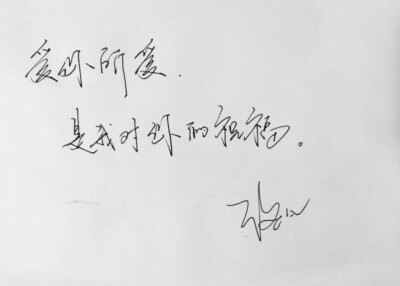 爱你所爱.
是我对你的祝福。